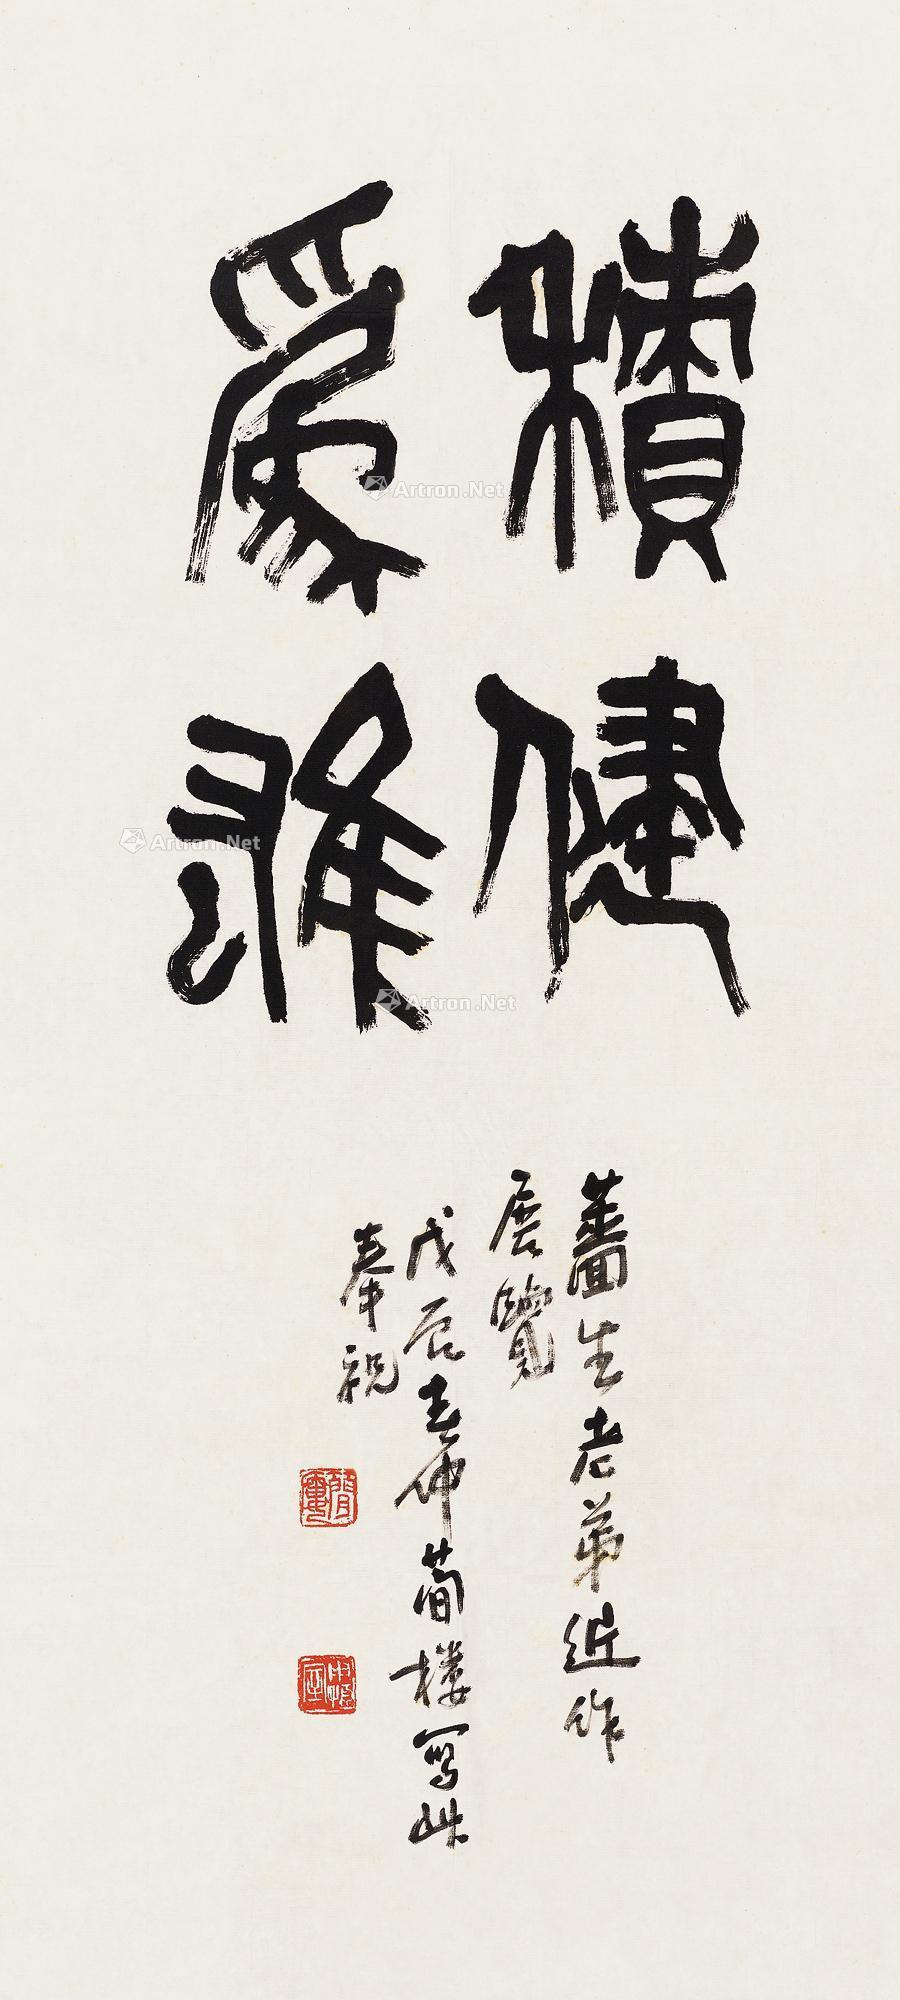 積健
爲雄
薔生老弟近作
展覽
戊辰春仲蕳樓寫此
奉祝
Artron.Net
Artron.Net
Artron.Net